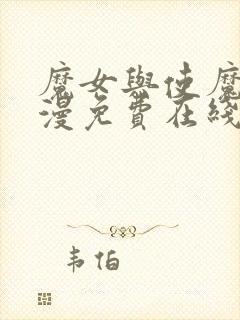 魔女與使魔
漫免費在綫
韦伯